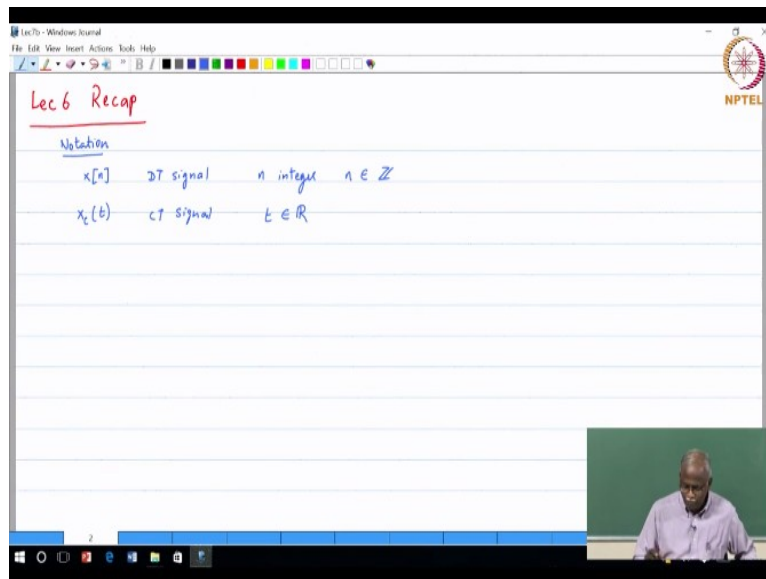 Lec7b - Windows Journal
File Edit View Insert Actions Tools Help
NPTEL
Lec 6 Recap
Notation
x[n] DT signal n integer n ∈ ℤ
x_c(t) CT signal t ∈ ℝ
2